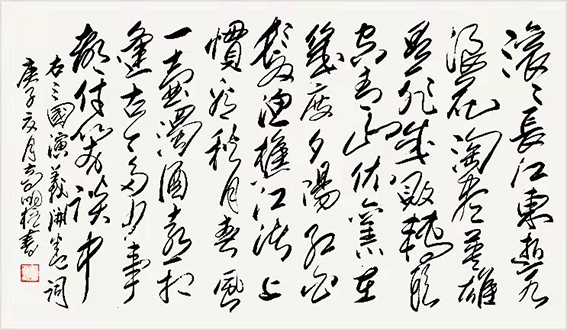 滚〻長江東逝水
浪花淘盡英雄
是非成敗轉頭
空青山依舊在
幾度夕陽紅白
髮漁樵江渚上
慣看秋月春風
一壺濁酒喜相
逢古今多少事
都付笑談中
右三國演義開卷詞
庚子月書